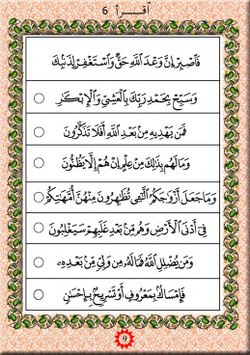 أقرأ 6
فَاصْبِرْ إِنَّ وَعْدَ اللَّهِ حَقٌّ وَاسْتَغْفِرْ لِذَنبِكَ
وَسَبِّحْ بِحَمْدِ رَبِّكَ بِالْعَشِيِّ وَالْإِبْكَارِ
فَمَن يَهْدِيهِ مِن بَعْدِ اللَّهِ أَفَلَا تَذَكَّرُونَ
وَمَا لَهُم بِذَٰلِكَ مِنْ عِلْمٍ إِنْ هُمْ إِلَّا يَظُنُّونَ
وَمَا جَعَلَ أَزْوَاجَكُمُ اللَّائِي تُظَاهِرُونَ مِنْهُنَّ أُمَّهَاتِكُمْ
فِي أَدْنَى الْأَرْضِ وَهُم مِّن بَعْدِ غَلَبِهِمْ سَيَغْلِبُونَ
وَمَن يُضْلِلِ اللَّهُ فَمَا لَهُ مِن وَلِيٍّ مِّن بَعْدِهِ
فَإِمْسَاكٌ بِمَعْرُوفٍ أَوْ تَسْرِيحٌ بِإِحْسَانٍ
9